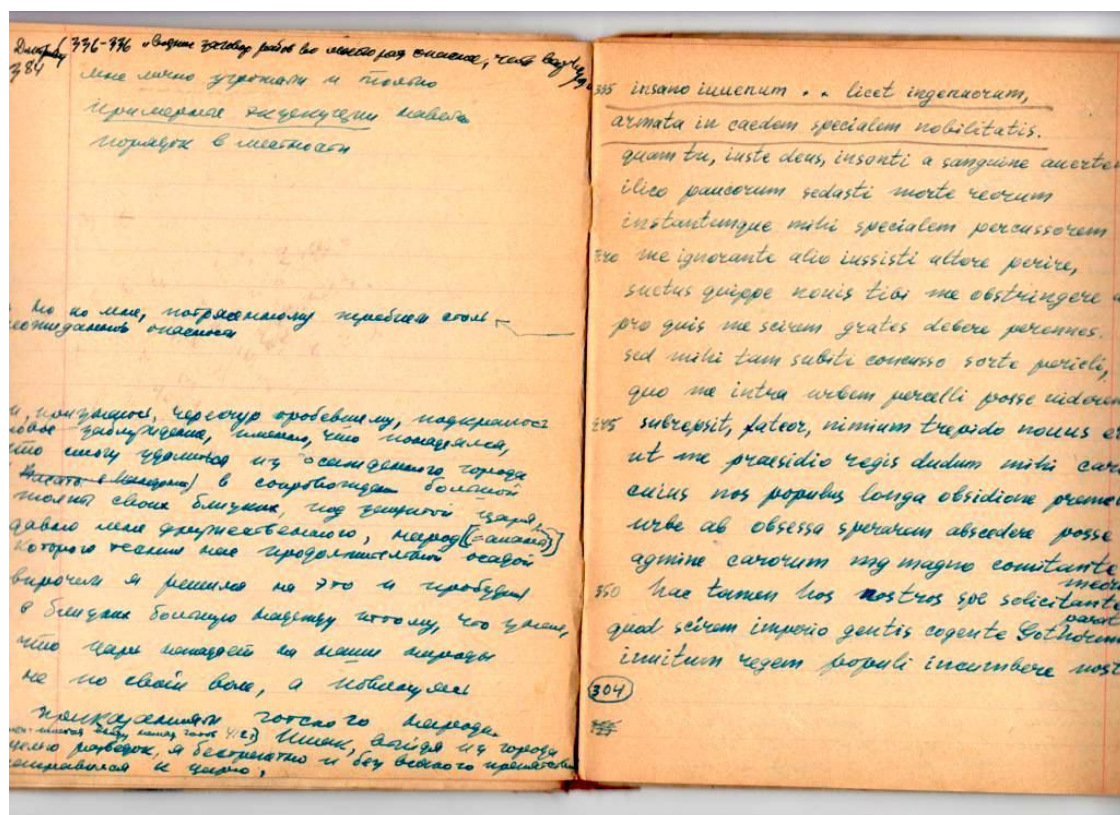 Дмитрев 336-336 "
384
мне лично угрожали и только
примерная экзекуция навела
порядок в местности
Но ко мне, потрясенному жребием столь
неожиданной опасности
и, признаюсь, чересчур оробевшему, подкралось
новое заблуждение, именно, что понадеялся,
что смогу удалиться из осажденного города
в сопровождении большой
толпы своих близких, под защитой царя,
давно мне дружественного, народ (= аланы)
которого теснил нас продолжительной осадой
впрочем я решился на это и пробудил
в близких большую надежду потому, что узнал,
что царь нападает на наши народы
не по своей воле, а повинуясь
приказаниям готского народа.
Итак, выйдя из города
целью разведок, я беспрепятно и без всякого препятствия
отправился к царю,
335 insano iuuenum . . licet ingenuorum,
armata in caedem specialem nobilitatis.
quam tu, iuste deus, insonti a sanguine auerten
ilico paucorum sedasti morte reorum
instantemque mihi specialem percussorem
340 me ignorante alio iussisti ultore perire,
suetus quippe nouis tibi me obstringere
pro quis me scirem grates debere perennes.
sed mihi tam subiti concusso sorte pericli,
quo me intra urbem percelli posse uiderem
345 subrepsit, fateor, nimium trepido nouus er
ut me praesidio regis dudum mihi cari
cuius nos populus longa obsidione preme
urbe ab obsessa sperarem abscedere posse
agmine carorum magno comitante
meor
350 hac tamen hos nostros spe solicitante
parat
quod scirem imperio gentis cogente Gothorum
inuitum regem populi incumbere nost
304